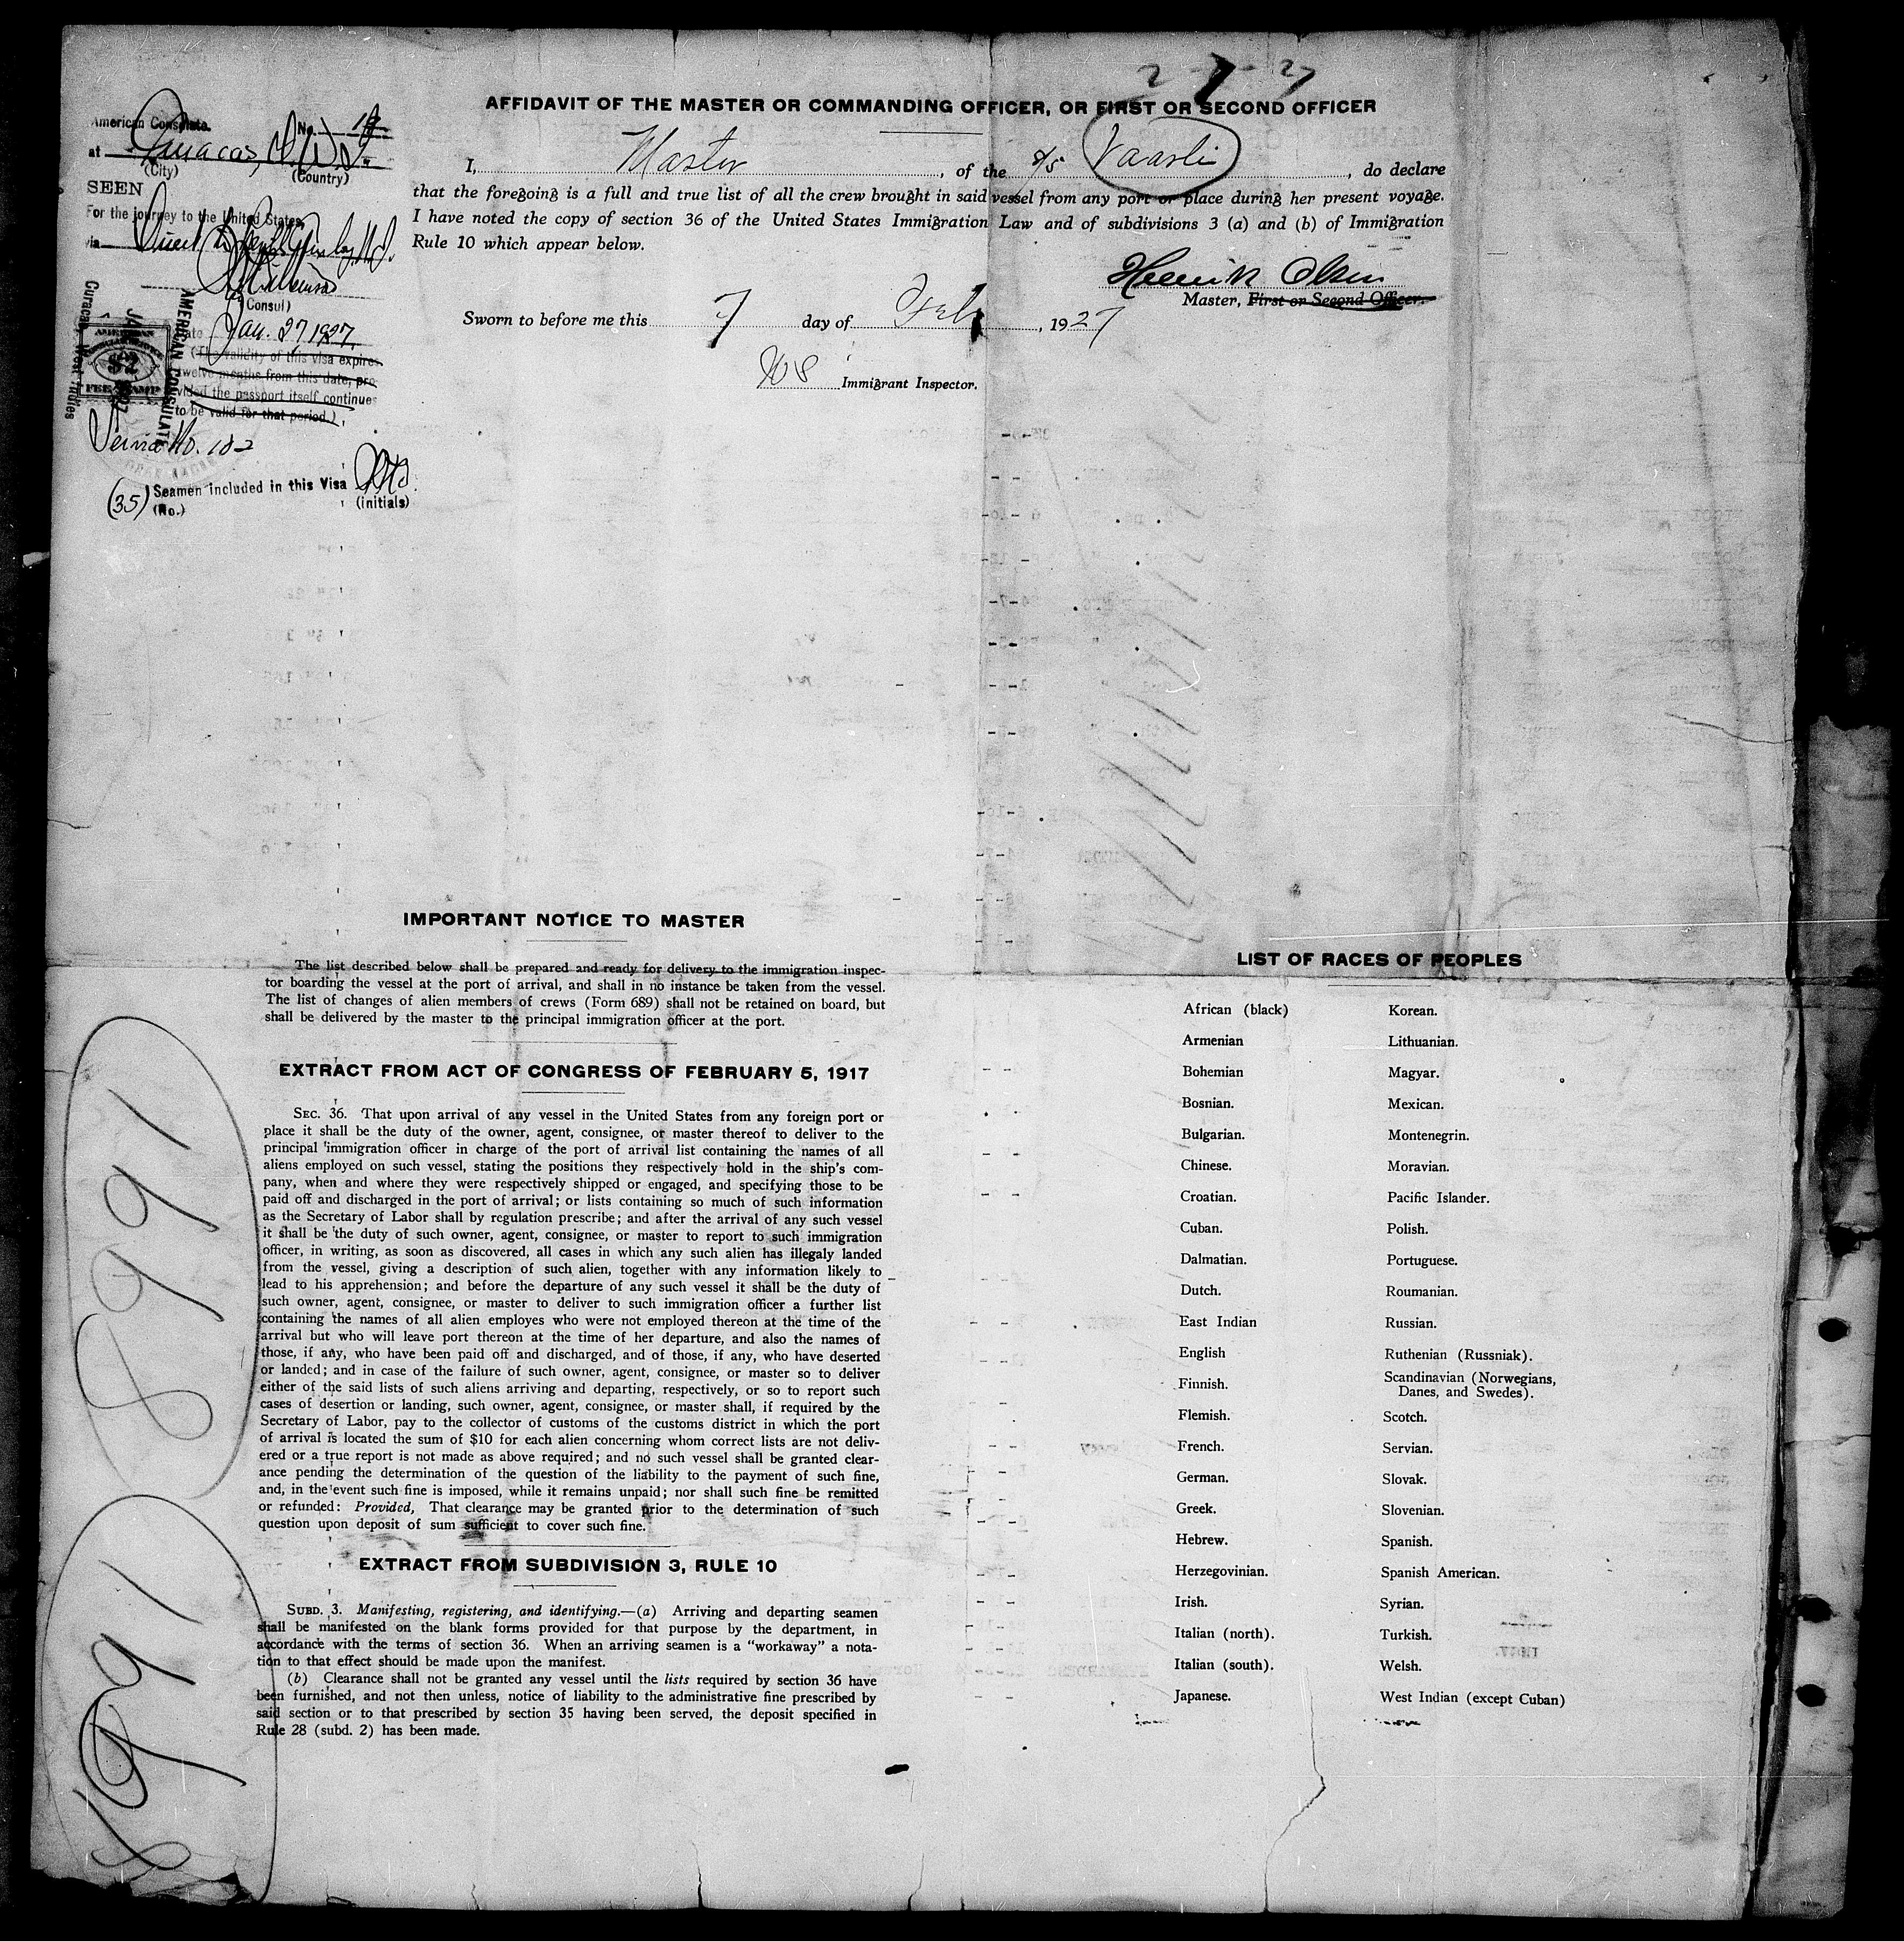 2-7-27
AFFIDAVIT OF THE MASTER OR COMMANDING OFFICER, OR FIRST OR SECOND OFFICER
American Consulate.
No.
at Curacao, D.W.I.
(City) (Country)
SEEN
For the journey to the United States
via
(Consul)
Date Jan. 27 1927.
(The validity of this visa expires
twelve months from this date, pro-
vided the passport itself continues
to be valid for that period.)
AMERICAN CONSULATE
Curacao, West Indies
AMERICAN
$2
FEE STAMP
Service No. 182
(35) Seamen included in this Visa
(No.) (initials)
I, Master, of the S/S Vaarli, do declare
that the foregoing is a full and true list of all the crew brought in said vessel from any port or place during her present voyage.
I have noted the copy of section 36 of the United States Immigration Law and of subdivisions 3 (a) and (b) of Immigration
Rule 10 which appear below.
Henrik Olsen
Master, First or Second Officer.
Sworn to before me this 7 day of Feb, 1927
Immigrant Inspector.
IMPORTANT NOTICE TO MASTER
The list described below shall be prepared and ready for delivery to the immigration inspec-
tor boarding the vessel at the port of arrival, and shall in no instance be taken from the vessel.
The list of changes of alien members of crews (Form 689) shall not be retained on board, but
shall be delivered by the master to the principal immigration officer at the port.
EXTRACT FROM ACT OF CONGRESS OF FEBRUARY 5, 1917
SEC. 36. That upon arrival of any vessel in the United States from any foreign port or
place it shall be the duty of the owner, agent, consignee, or master thereof to deliver to the
principal immigration officer in charge of the port of arrival list containing the names of all
aliens employed on such vessel, stating the positions they respectively hold in the ship's com-
pany, when and where they were respectively shipped or engaged, and specifying those to be
paid off and discharged in the port of arrival; or lists containing so much of such information
as the Secretary of Labor shall by regulation prescribe; and after the arrival of any such vessel
it shall be the duty of such owner, agent, consignee, or master to report to such immigration
officer, in writing, as soon as discovered, all cases in which any such alien has illegaly landed
from the vessel, giving a description of such alien, together with any information likely to
lead to his apprehension; and before the departure of any such vessel it shall be the duty of
such owner, agent, consignee, or master to deliver to such immigration officer a further list
containing the names of all alien employes who were not employed thereon at the time of the
arrival but who will leave port thereon at the time of her departure, and also the names of
those, if any, who have been paid off and discharged, and of those, if any, who have deserted
or landed; and in case of the failure of such owner, agent, consignee, or master so to deliver
either of the said lists of such aliens arriving and departing, respectively, or so to report such
cases of desertion or landing, such owner, agent, consignee, or master shall, if required by the
Secretary of Labor, pay to the collector of customs of the customs district in which the port
of arrival is located the sum of $10 for each alien concerning whom correct lists are not deliv-
ered or a true report is not made as above required; and no such vessel shall be granted clear-
ance pending the determination of the question of the liability to the payment of such fine,
and, in the event such fine is imposed, while it remains unpaid; nor shall such fine be remitted
or refunded: Provided, That clearance may be granted prior to the determination of such
question upon deposit of sum sufficient to cover such fine.
EXTRACT FROM SUBDIVISION 3, RULE 10
SUBD. 3. Manifesting, registering, and identifying.—(a) Arriving and departing seamen
shall be manifested on the blank forms provided for that purpose by the department, in
accordance with the terms of section 36. When an arriving seamen is a "workaway" a nota-
tion to that effect should be made upon the manifest.
(b) Clearance shall not be granted any vessel until the lists required by section 36 have
been furnished, and not then unless, notice of liability to the administrative fine prescribed by
said section or to that prescribed by section 35 having been served, the deposit specified in
Rule 28 (subd. 2) has been made.
LIST OF RACES OF PEOPLES
African (black)
Armenian
Bohemian
Bosnian.
Bulgarian.
Chinese.
Croatian.
Cuban.
Dalmatian.
Dutch.
East Indian
English
Finnish.
Flemish.
French.
German.
Greek.
Hebrew.
Herzegovinian.
Irish.
Italian (north).
Italian (south).
Japanese.
Korean.
Lithuanian.
Magyar.
Mexican.
Montenegrin.
Moravian.
Pacific Islander.
Polish.
Portuguese.
Roumanian.
Russian.
Ruthenian (Russniak).
Scandinavian (Norwegians,
Danes, and Swedes).
Scotch.
Servian.
Slovak.
Slovenian.
Spanish.
Spanish American.
Syrian.
Turkish.
Welsh.
West Indian (except Cuban)
8991
8991